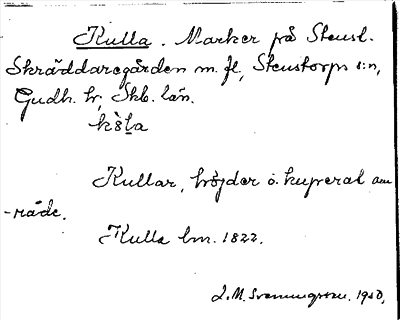 Kulla. Marker på Stenst.
Skräddaregården m. fl, Stenstorps s:n,
Gudh. hr, Skb. län.
Kullar, höjder o. kuperat om
-råde.
Kulla lm. 1822.
1940.